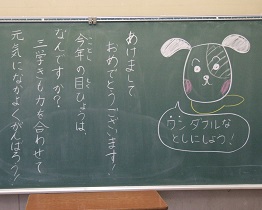 あけまして
おめでとうございます!
今年の目ひょうは、
なんですか?
三学きも力を合わせて
元気になかよくがんばろう!
ワンダフルな
としにしよう!